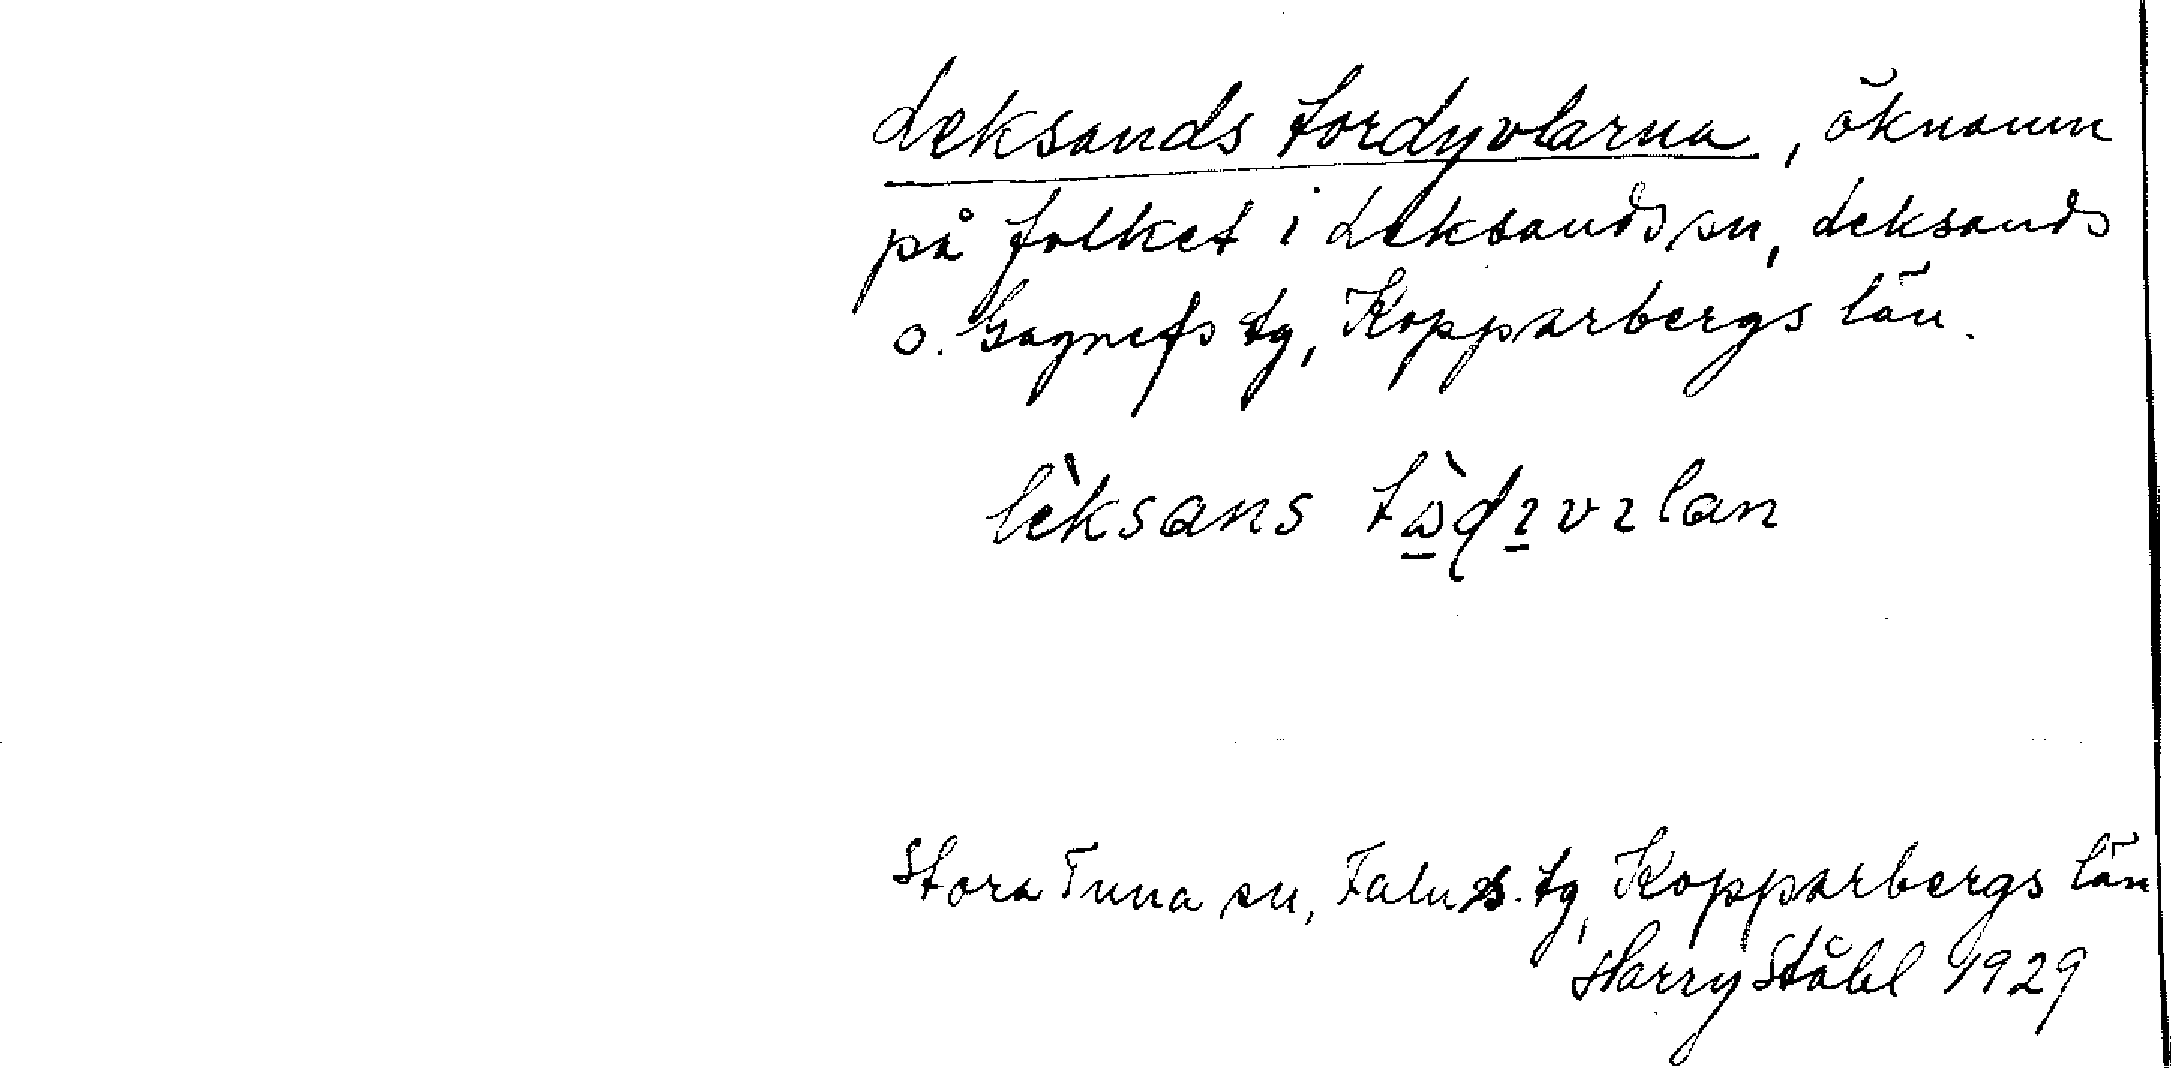 Leksands tordyvlarna, öknamn
på folket i Leksands sn, Leksands
o. Gagnefs tg, Kopparbergs län.
lèksans
Stora Tuna sn, Falu s. tg, Kopparbergs län
Harry Ståhl 1929